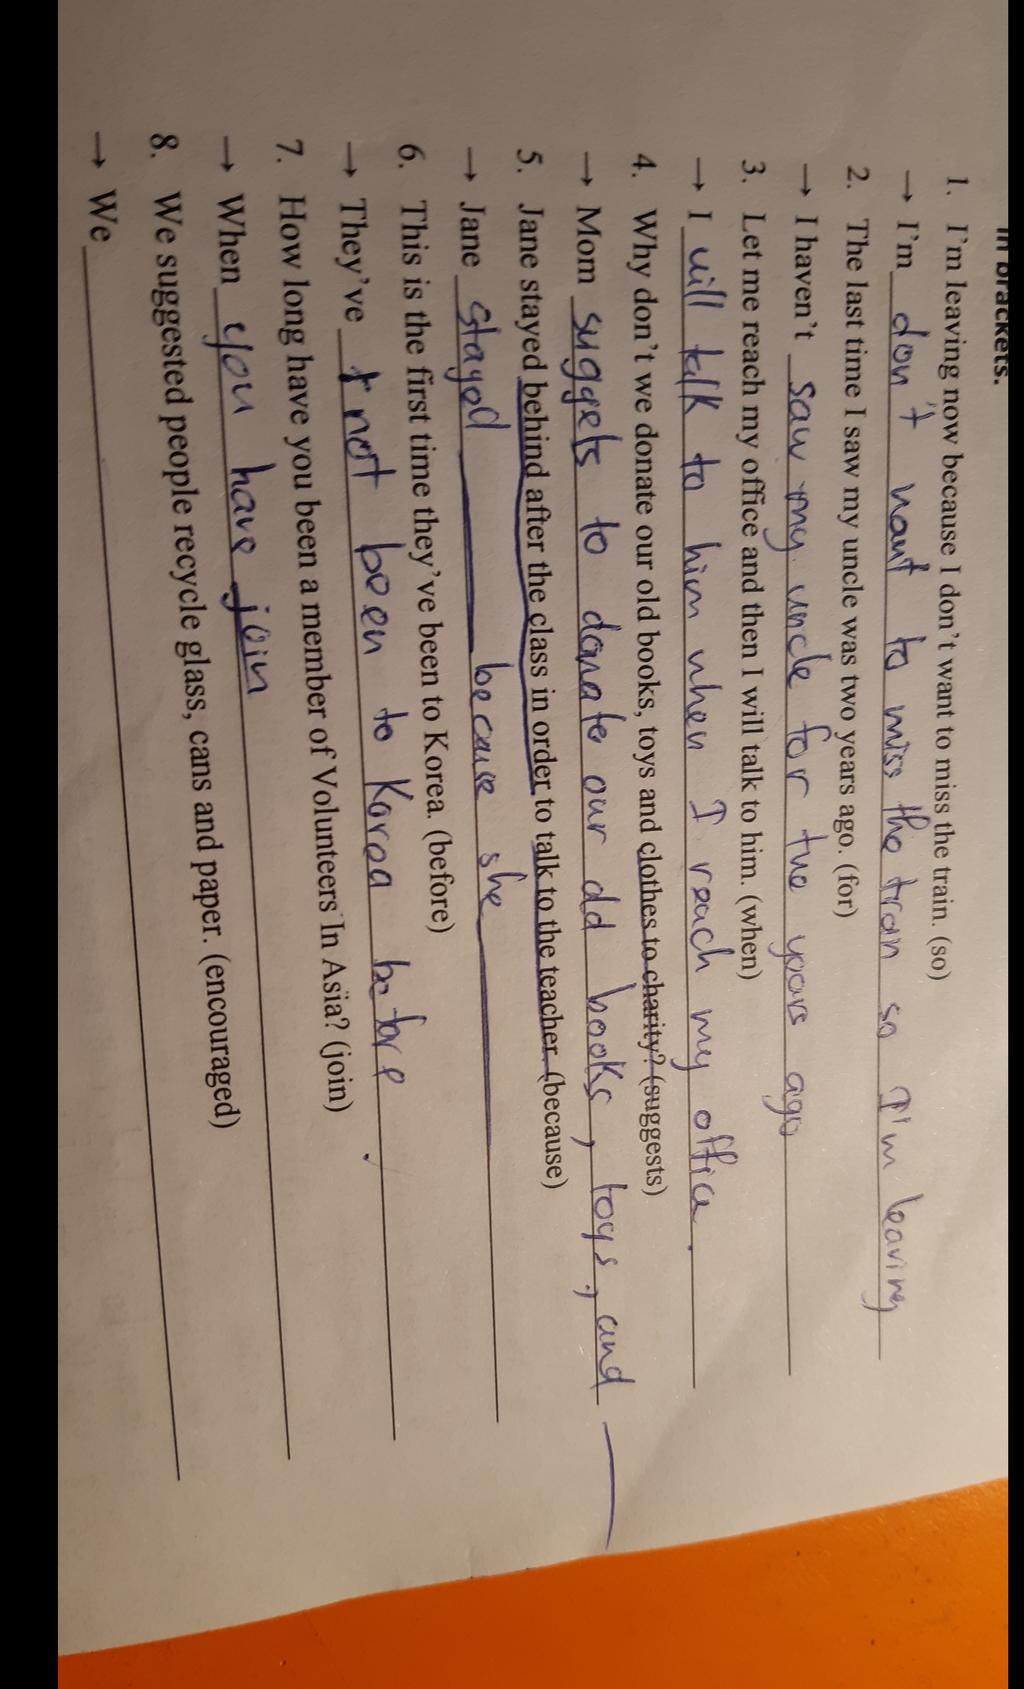 in brackets.
1. I'm leaving now because I don't want to miss the train. (so)
→ I'm don't want to miss the tran so I'm leaving
2. The last time I saw my uncle was two years ago. (for)
→ I haven't saw my uncle for two years ago
3. Let me reach my office and then I will talk to him. (when)
→ I will talk to him when I reach my office.
4. Why don't we donate our old books, toys and clothes to charity? (suggests)
→ Mom suggets to donate our old books, toys, and
5. Jane stayed behind after the class in order to talk to the teacher. (because)
→ Jane stayed because she
6. This is the first time they've been to Korea. (before)
→ They've not been to Korea before.
7. How long have you been a member of Volunteers In Asia? (join)
→ When you have join
8. We suggested people recycle glass, cans and paper. (encouraged)
→ We